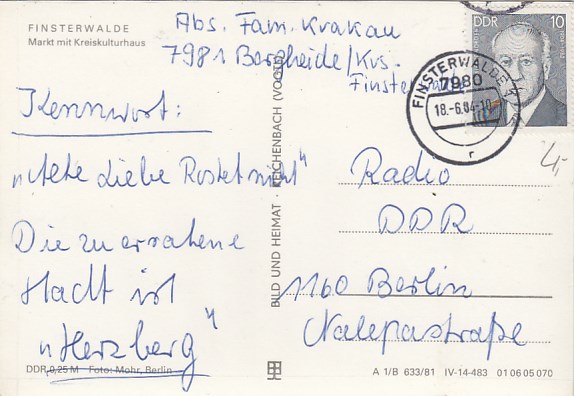 FINSTERWALDE
Markt mit Kreiskulturhaus
Abs. Fam. Krakau
7981 Bergheide/Krs.
Finsterwalde
Kennwort:
„Alte Liebe Rostet nicht"
Die zu erratene
Stadt ist
„Herzberg"
DDR 0,25 M Foto: Mohr, Berlin
BILD UND HEIMAT · REICHENBACH (VOGTL)
DDR 10
FINSTERWALDE 1
7980
18.-6.84-18
r
4,-
Radio
DDR
1160 Berlin
Nalepastraße
A 1/B 633/81 IV-14-483 01 06 05 070